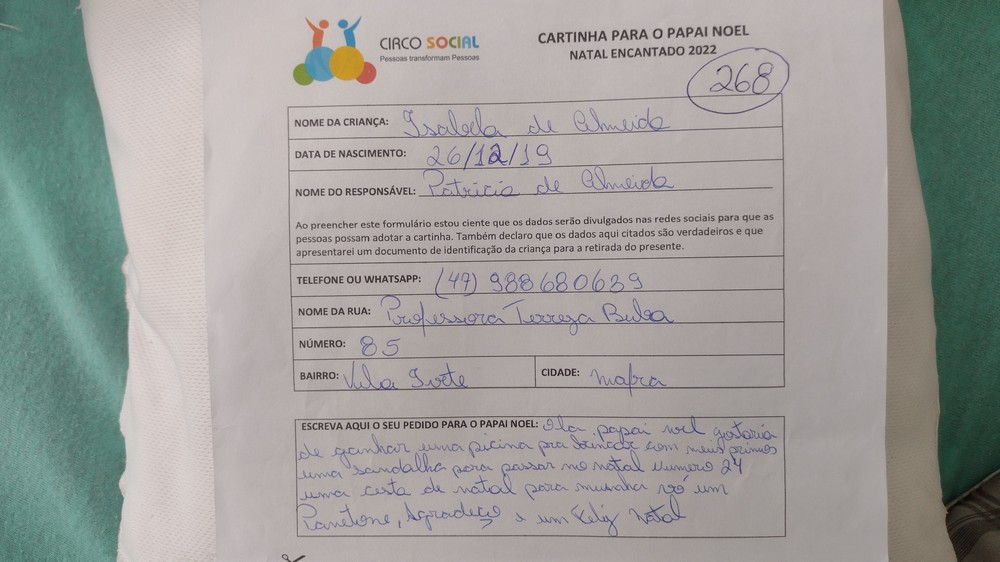 CIRCO SOCIAL
Pessoas transformam Pessoas
CARTINHA PARA O PAPAI NOEL
NATAL ENCANTADO 2022
268
NOME DA CRIANÇA: Isabela de Almeida
DATA DE NASCIMENTO: 26/12/19
NOME DO RESPONSÁVEL: Patricia de Almeida
Ao preencher este formulário estou ciente que os dados serão divulgados nas redes sociais para que as
pessoas possam adotar a cartinha. Também declaro que os dados aqui citados são verdadeiros e que
apresentarei um documento de identificação da criança para a retirada do presente.
TELEFONE OU WHATSAPP: (47) 988680639
NOME DA RUA: Professora Tereza Buba
NÚMERO: 85
BAIRRO: Vila Ivete CIDADE: Mafra
ESCREVA AQUI O SEU PEDIDO PARA O PAPAI NOEL: Ola papai noel gostaria
de ganhar uma picina pra brincar com meus primos
uma sandalha para passar no natal numero 24
uma cesta de natal para minha vó um
Panetone, Agradeço e um Feliz Natal